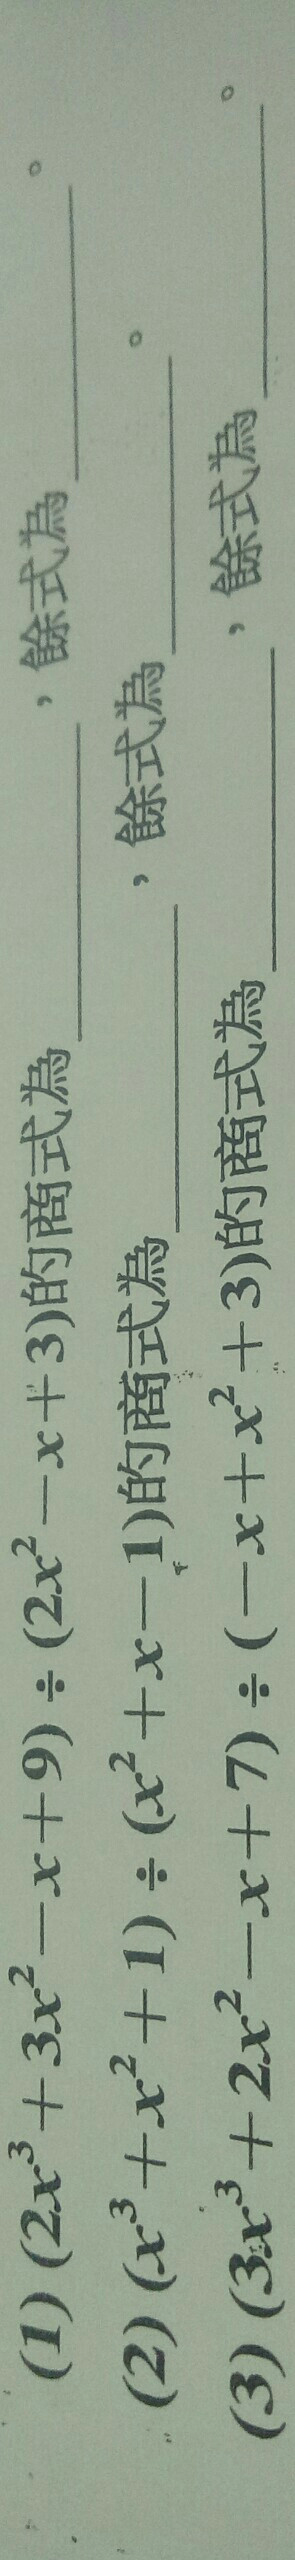 (1) (2x³+3x²-x+9)÷(2x²-x+3)的商式為______,餘式為______。
(2) (x³+x²+1)÷(x²+x-1)的商式為______,餘式為______。
(3) (3x³+2x²-x+7)÷(-x+x²+3)的商式為______,餘式為______。